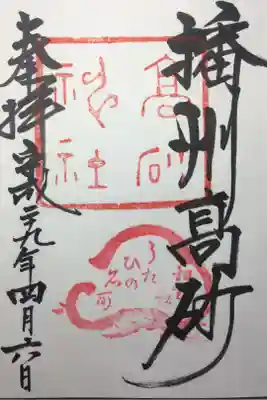 播州高砂
高砂
神社
うた
ひの
名所
奉拝 平成二九年四月六日